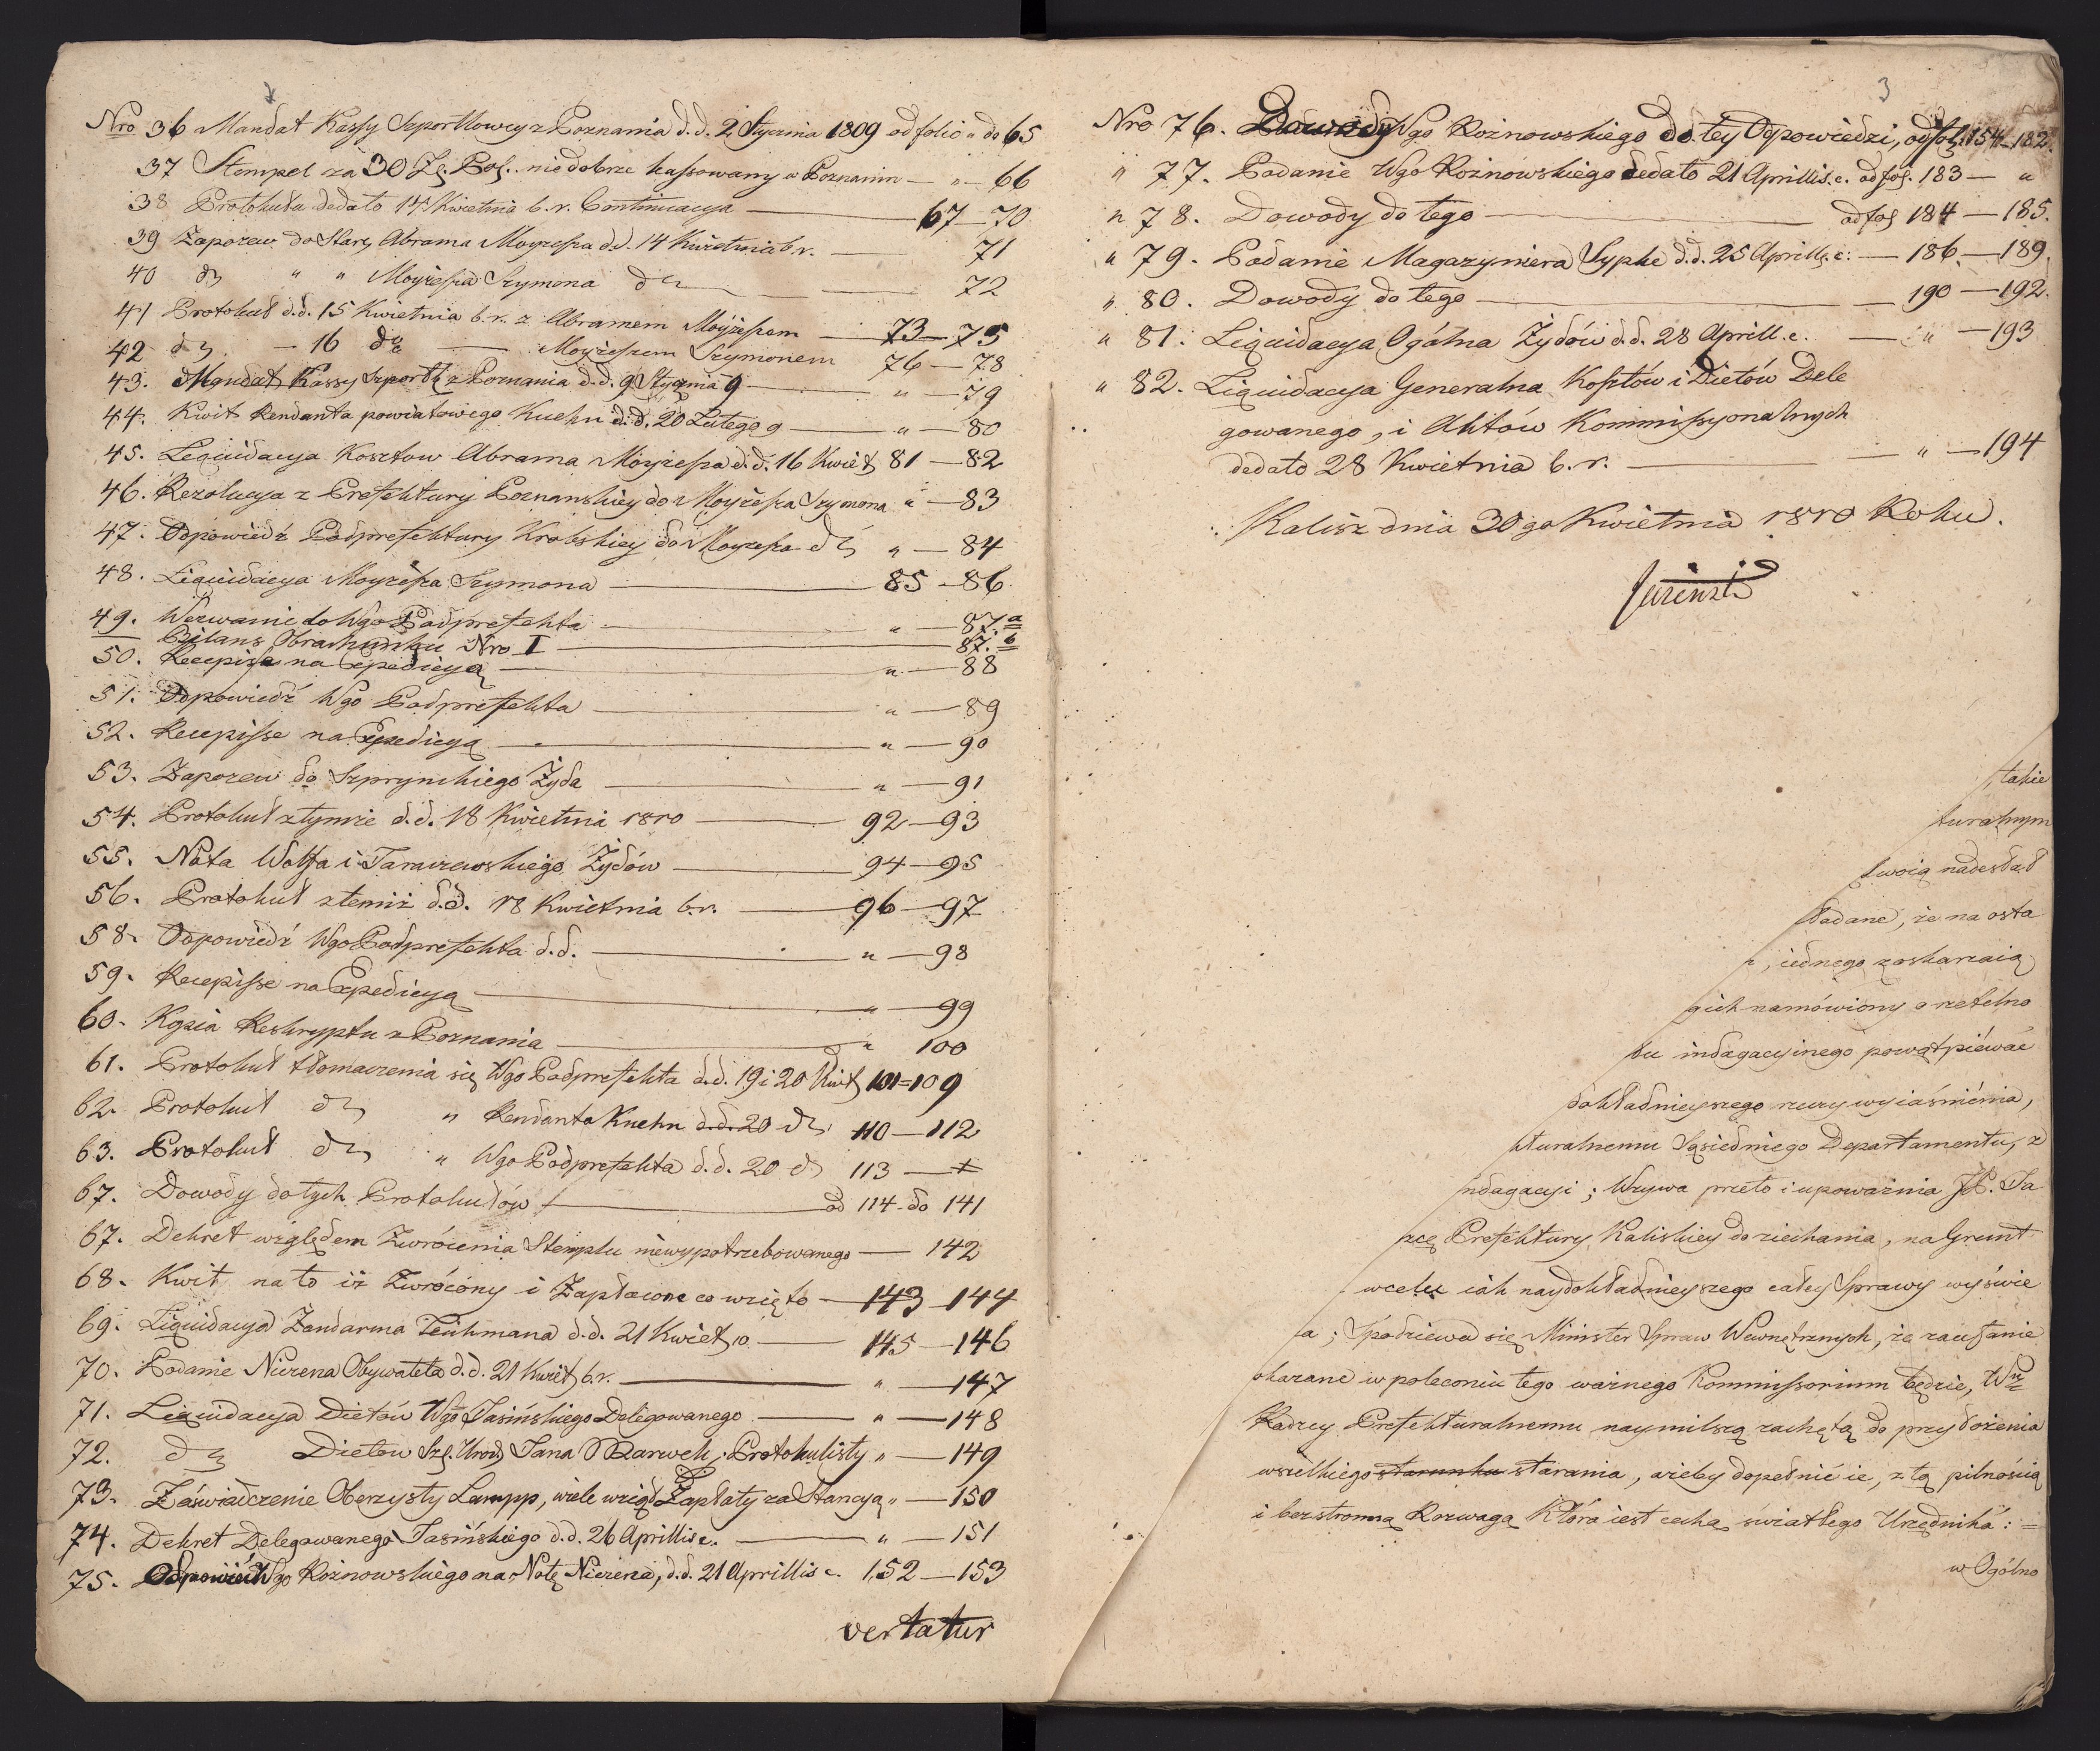 Nro 36 Mandat Kassy Szportlowey z Poznania d. d. 2 Stycznia 1809 od folio " do 65
37 Stempel za 30 Zł. Pol. niedobrze kassowany w Poznaniu — " — 66
38 Protokuła dedato 14 Kwietnia b. r. Continuacya — 67—70
39 Zapozew do Star. Abrama Moyżesza d.d. 14 Kwietnia b.r. — 71
40 do " " Moyżesza Szymona do — 72
41 Protokuł d.d. 15 Kwietnia b.r. z Abramem Moyżeszem — 73—75
42 do — 16 do — Moyżeszem Szymonem 76—78
43. Mandat Kassy Szportl z Poznania d.d. 9 Stycznia 9 — " — 79
44. Kwit Rendanta powiatowego Kuehn d.d. 20 Lutego 9 — " — 80
45. Liquidacya Kosztow Abrama Moyżesza d.d. 16 Kwiet 81—82
46. Rezolucya z Prefektury Poznanskiey do Moyżesza Szymona " — 83
47. Odpowiedź Podprefektury Krobskiey do Moyzesza do " — 84
48. Liquidacya Moyżesza Szymona — 85—86
49. Wezwanie do Wgo Podprefekta — " — 87. a
Bilans Obrachunku Nro I — 87. b
50. Recepisse na Expedicyą — " — 88
51. Odpowiedź Wgo Podprefekta — " — 89
52. Recepisse na Expedicyą — " — 90
53. Zapozew do Szprynskiego Żyda — " — 91
54. Protokuł z tymże d.d. 18 Kwietnia 1810 — 92—93
55. Nota Wolfa i Tarnczewskiego Żydów — 94—95
56. Protokuł z temiż d.d. 18 Kwietnia b.r. — 96—97
58. Odpowiedź Wgo Podprefekta d.d. — " — 98
59. Recepisse na Expedicyą — " — 99
60. Kopia Reskryptu z Poznania — " 100
61. Protokuł tłomaczenia się Wgo Podprefekta d.d. 19 i 20 Kwit 101=109
62. Protokuł do " Rendanta Kuehn d.d. 20 do 110—112
63. Protokuł do " Wgo Podprefekta d.d. 20 do 113 —
67. Dowody do tych Protokułów — od 114 do 141
67. Dekret względem Zwrócenia Stemplu niewypotrzebowanego — 142
68. Kwit na to iż Zwrócony i Zapłacone co wzięto — 143—144
69. Liquidacya Zandarma Teichmana d.d. 21 Kwiet 10 — 145—146
70. Podanie Nierena Obywatela d.d. 21 Kwiet b.r. — " — 147
71. Liquidacya Dietów Wgo Jasińskiego Delegowanego — " — 148
72. do Dietow Szl. Urod. Jana Marweh, Protokulisty " — 149
73. Zaświadczenie Oberzysty Lampp, wiele wziął Zapłaty za Stancyą " — 150
74. Dekret Delegowanego Jasińskiego d.d. 26 Aprillis c. — " — 151
75. Odpowiedź Wgo Rożnowskiego na Notę Nierena, d.d. 21 Aprillis c. 152—153
vertatur
3
Nro 76. Dowody Wgo Rożnowskiego do tey Odpowiedzi, od fol. 154—182.
" 77. Podanie Wgo Rożnowskiego dedato 21 Aprillis. c. od fol. 183 — "
" 78. Dowody do tego — od fol 184—185.
" 79. Podanie Magazyniera Sypke d.d. 25 Aprill. c: — 186.—189.
" 80. Dowody do tego — 190—192.
" 81. Liquidacya Ogólna Żydów d.d. 28 Aprill. c. — " — 193
" 82. Liquidacya Generalna Kosztów i Dietów Dele
gowanego, i Aktów Kommissyonalnych
dedato 28 Kwietnia b. r. — " — 194
Kalisz dnia 30go Kwietnia 1810 Roku.
takie
turalnym
swoią nadesłał
dadane, że na osta
, iednego zaskarzaią
gich namówiony o rzetelno
tu indagacyinego powątpiéwać
dokładnieyszego rzeczy wyiaśniénia,
kturalnemu Sąsiedniego Departamentu, z
ndagacyi; Wzywa przeto i upoważnia JP. Ja
zcę Prefektury Kaliskiey do ziechania, na Grunt
w celu iak naydokładnieyszego całey Sprawy wyświe
a; Spodziewa się Minister Spraw Wewnętrznych, że zaufanie
okazane w poleceniu tego ważnego Kommissorium będzie, Wu
Radzcy Prefekturalnemu naymilszą zachętą do przyłożenia
wszelkiego starunku starania, ażeby dopełnić ie, z tą pilnością
i bezstronną Rozwagą Która iest cechą światłego Urzędnika: =
w Ogólno